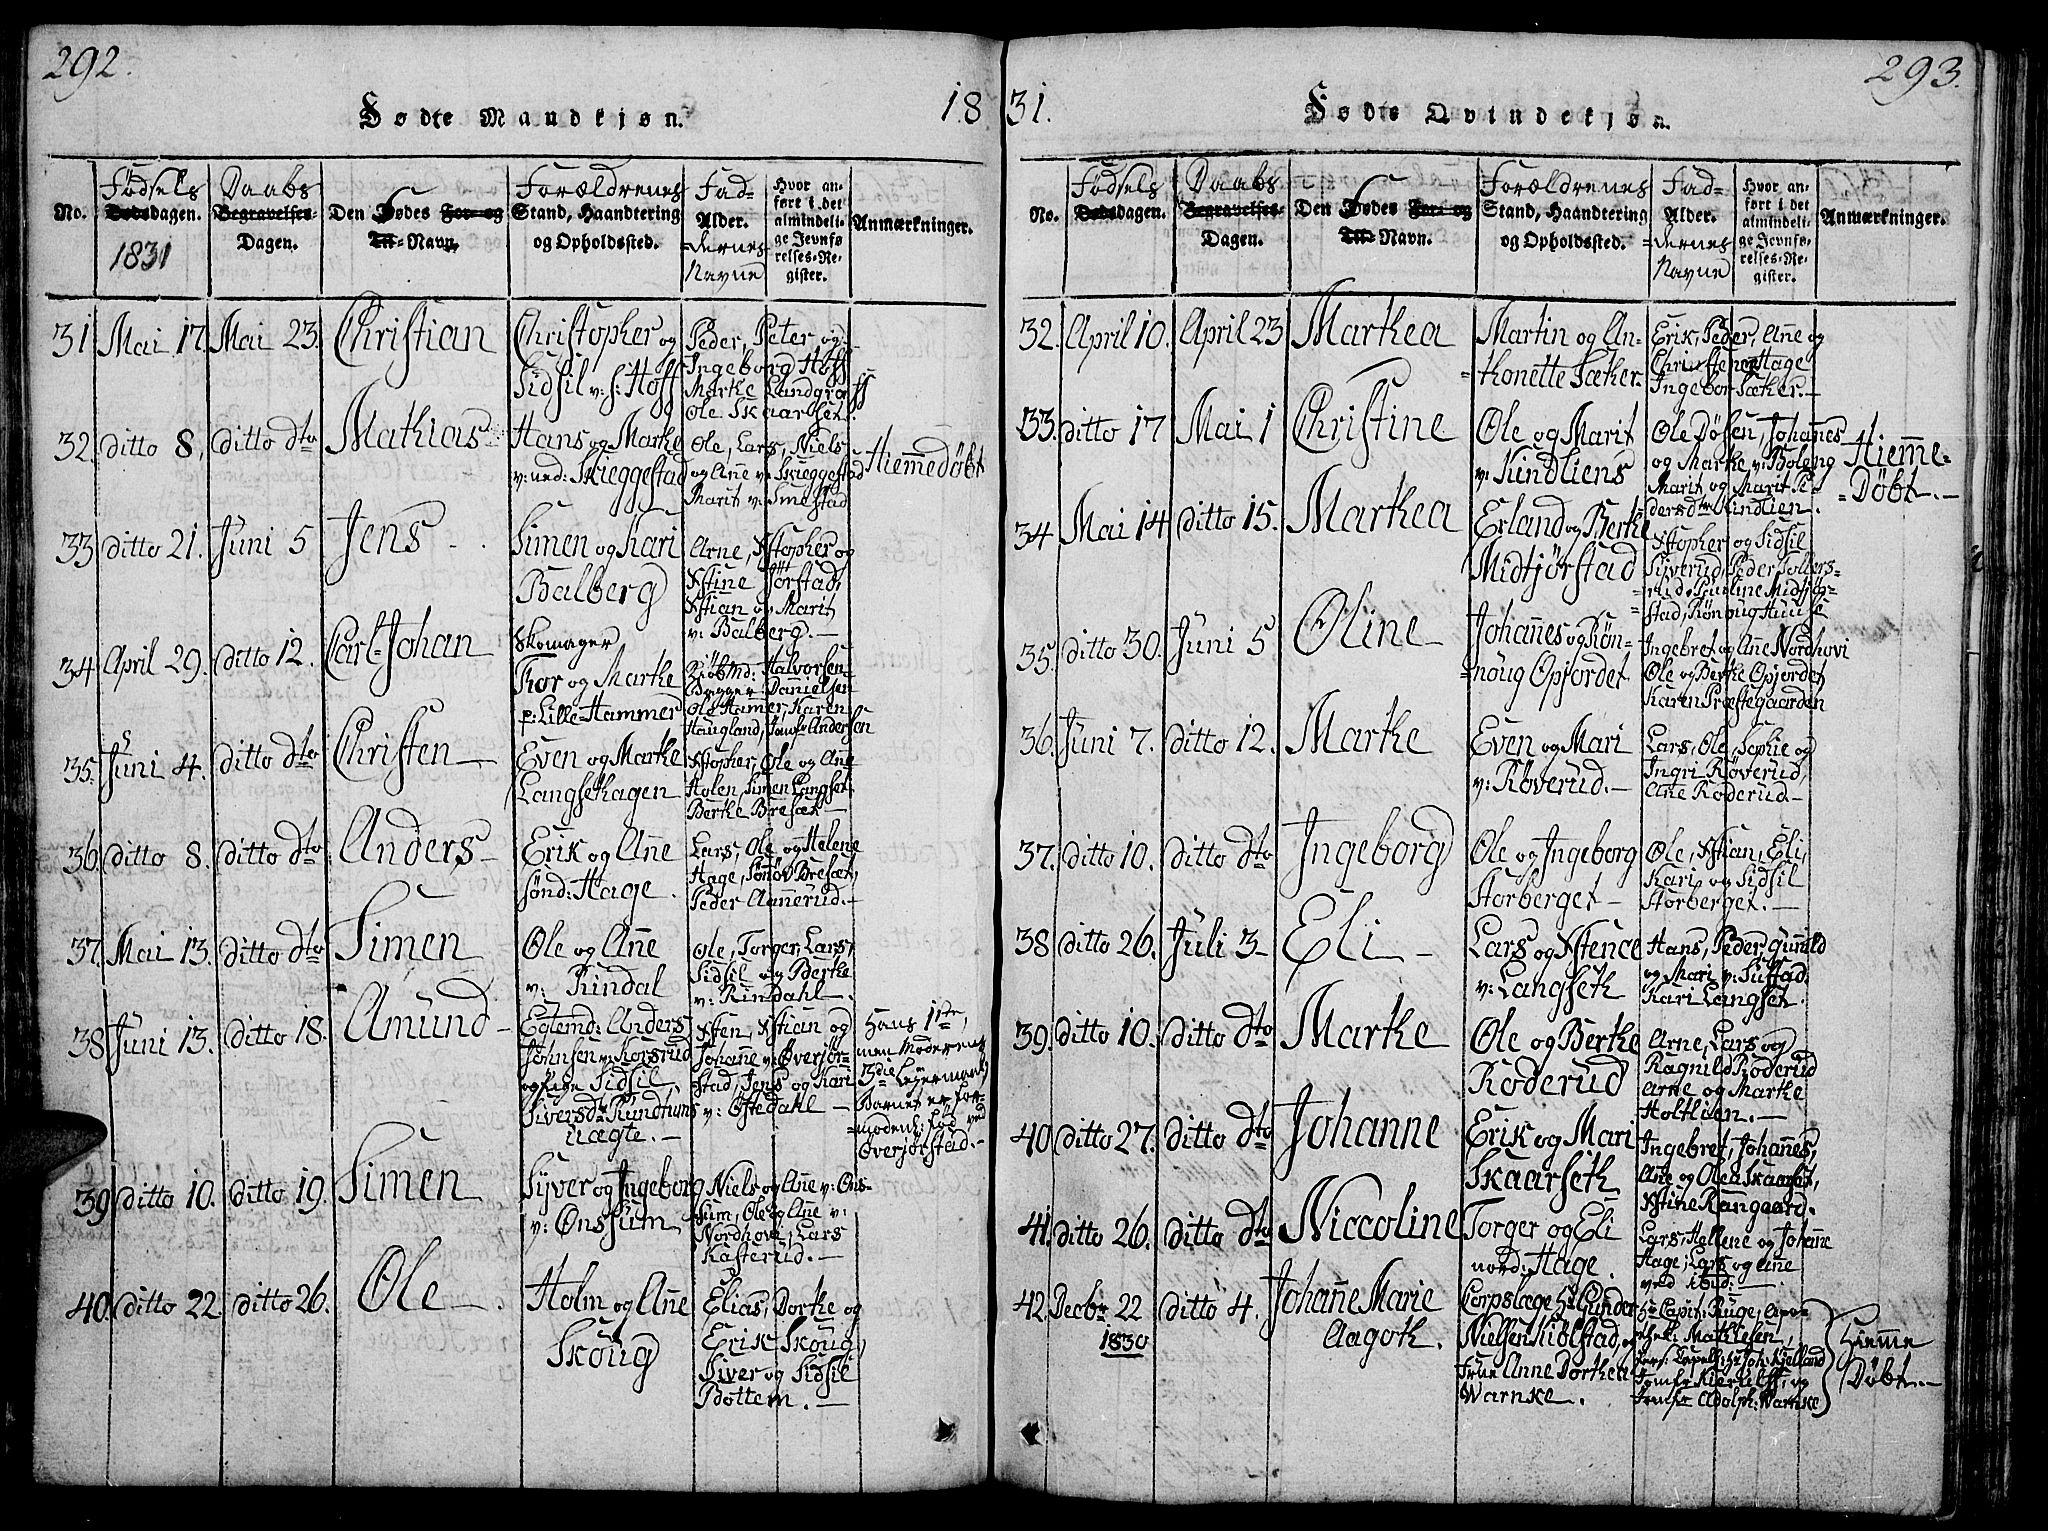 292.
Fødte Mandkjøn.
18
No.
Fødsels
Dødsdagen.
1831
Daabs
Begravelses-
Dagen.
Den Fødes For og
Til-Navn.
Forældrenes
Stand, Haandtering
og Opholdssted.
Fad-
Alder.
=dernes
Navne
Hvor an-
ført i det
almindeli-
ge Jevnfø-
relses-Re-
gister.
Anmærkninger.
31 Mai 17. Mai 23. Christian
Christopher og
Sidsil v: s: Hoff
Peder, Peter og
Ingeborg Hoff
Marthe Landgraff
Ole Skaarset.
32. ditto 8, ditto dto Mathias
Hans og Marthe
v: ned: Skieggestad
Ole, Lars, Niels
og Ane v: Skieggestad
Marit v: Smestad
Hiemmedøbt
33 ditto 21. Juni 5 Jens
Simen og Kari
Balberg
Arne, Xstopher og
Xstine Jørstad,
Xstian og Marit
v: Balberg.
34 April 29. ditto 12. Carl Johan
Skomager
Thor og Marthe
p: Lille Hammer
Kiøbmd: Halvorsen
Bygger Danielsen
Ole Hamer, Karen
Haugland, Jomfr Andersen
35. Juni 4. ditto dto Christen
Even og Marthe
Langsethagen
Xstopher, Ole og Ane
Holen, Simen Langset,
Berthe Bresæt
36. ditto 8. ditto dto Anders
Erik og Anne
sønd: Hage.
Lars, Ole og Helene
Hage, Sønov Bresæt,
Peder Aannerud.
37. Mai 13. ditto dto Simen
Ole og Anne
v: Rindal
Ole, Torger, Lars,
Sidsil og Berthe
v: Rindahl.
38 Juni 13. ditto 18. Amund
Egtemd: Anders
Johnsen v: Korsrud
og Pige Sidsil
Siversdr Rundtums
uægte.
Xsten, Xstian og
Johane v: Øverjør-
stad, Jens og Kari
v: Østedahl
Hans 1ste,
men Moderens
3die Leiermaal
Barnet er for-
=modentl: fød ved
Øverjørstad.
39 ditto 10. ditto 19. Simen
Syver og Ingeborg
v: Onssum
Niels og Ane v: Ons-
sum, Ole og Ane v:
Nordhove, Lars
Kasterud.
40. ditto 22. ditto 26. Ole
Holm og Anne
Skoug
Elias, Dorthe og
Erik Skoug,
Siver og Sidsil
Bottem.
293.
31.
Fødte Qvindekjøn.
No.
Fødsels
Dødsdagen.
Daabs
Begravelses-
Dagen.
Den Fødes For og
Til-Navn.
Forældrenes
Stand, Haandtering
og Opholdssted.
Fad-
Alder.
=dernes
Navne
Hvor an-
ført i det
almindeli-
ge Jevnfø-
relses-Re-
gister.
Anmærkninger.
32. April 10. April 23 Marthea
Martin og An-
=thonette Sæther.
Erik, Peder, Ane og
Hage
Ingebor Sæther.
33. ditto 17 Mai 1 Christine
Ole og Marit
v: Kindliens
Ole Døsen, Johannes
og Marthe v: Boleng
Marit og Marit Pe-
dersdtr Kindlien.
Hiemme-
=Døbt.
34 Mai 14 ditto 15. Marthea
Erland og Berthe
Midtjørstad
Xstopher og Sidsil
Syverud, Peder Sollers-
=rud, Pauline Midtjør-
=stad, Rønoug Huuse
35. ditto 30. Juni 5 Oline
Johannes og Røn-
=noug Opjordet
Ingebret og Ane Nordhovi
Ole og Berthe Opjordet
Karen Præstegaarden
36. Juni 7. ditto 12. Marthe
Even og Mari
v: Røverud.
Lars, Ole, Sophie og
Ingri Røverud,
Ane Roderud.
37. ditto 10. ditto dto Ingeborg
Ole og Ingeborg
Storberget
Ole, Xstian, Eli,
Kari og Sidsil
Storberget.
38 ditto 26. Juli 3 Eli
Lars og Xstence
v: Langseth
Hans, Peder, Gunild
og Mari v: Sustad.
Kari Langset.
39. ditto 10. ditto dto Marthe
Ole og Berthe
Roderud
Arne, Lars og
Ragnild Roderud
Arne og Marthe
Holtlien.
40 ditto 27. ditto dto Johanne
Erik og Mari
Skaarseth
Ingebret, Johannes,
Ane og Olea Skaarset,
Xstine Rangaard.
41. ditto 26. ditto dto Niccoline
Torger og Eli
nord: Hage.
Lars, Hellene og Johanne
Hage, Lars og Ane
ved ibid:
42. Decbr 22 ditto 4. Johanne Marie
1830
Aagoth.
Corpslæge Hr Gunder
Nielsen Kiølstad, og
Frue Anne Dorthea
Warnke.
Hr Capit: Ruge, Apo-
thek: Mathiesen,
Pers: Capell: Hr Joh: Kjelland
Jomfr Kierulff, og
Jomfr Adolph: Warnke
Hiemme
Døbt.